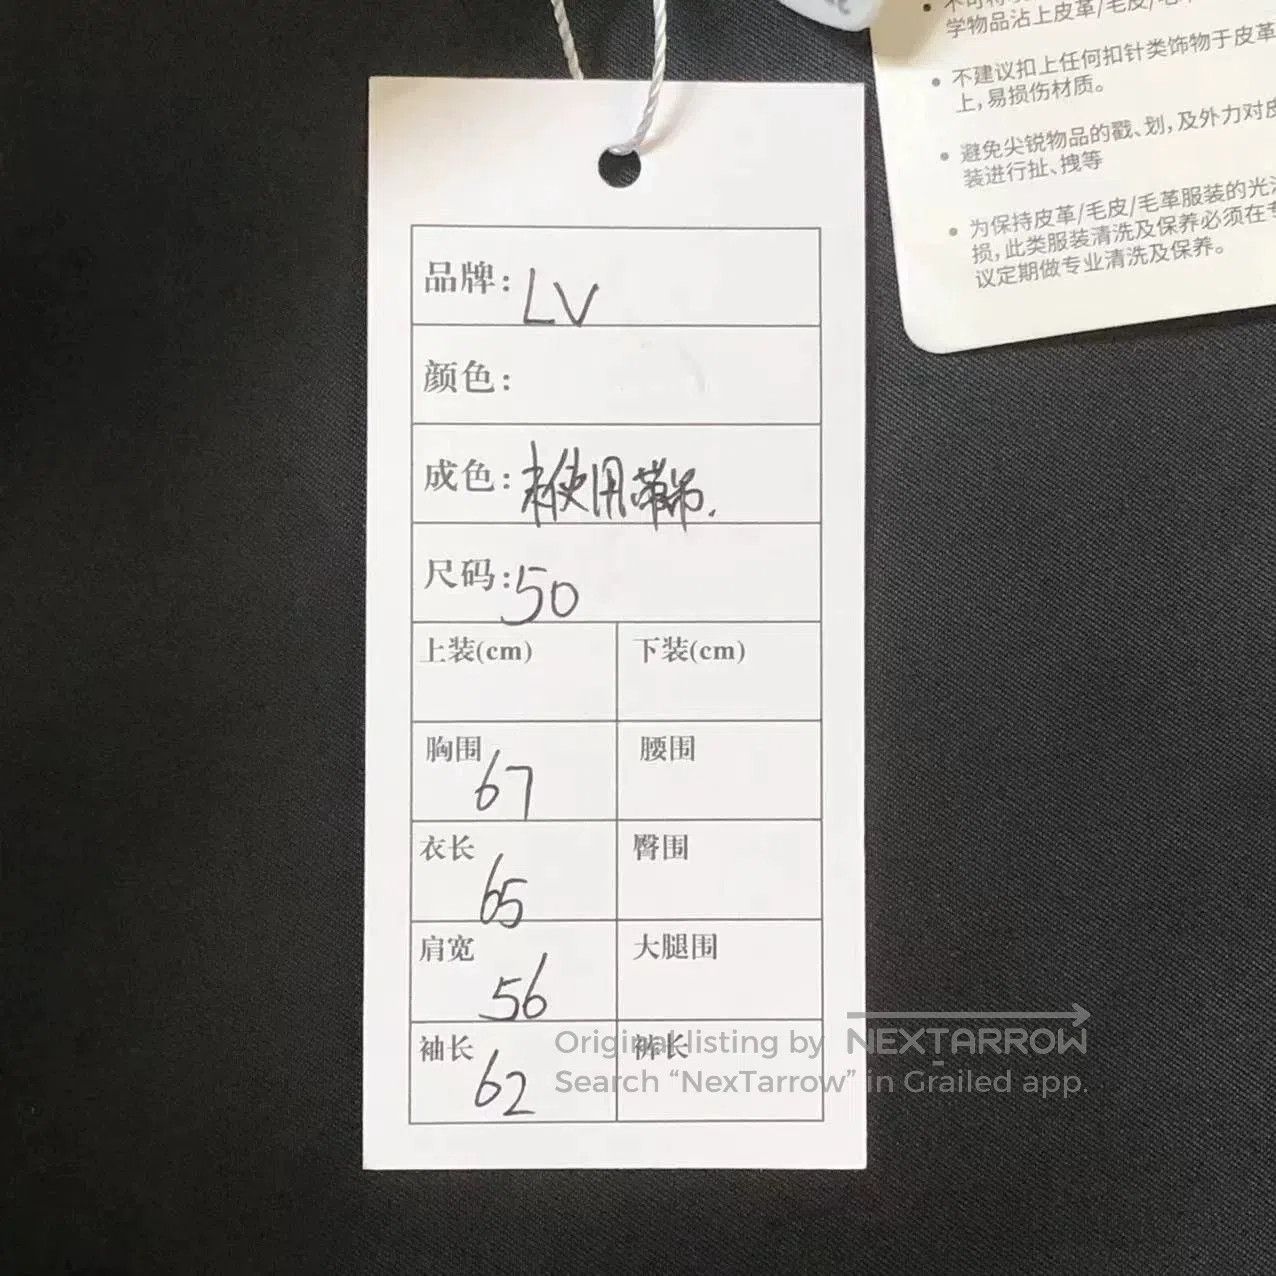 学物品沾上皮革/毛皮/
• 不建议扣上任何扣针类饰物于皮革
上,易损伤材质。
• 避免尖锐物品的戳、划,及外力对皮
装进行扯、拽等
• 为保持皮革/毛皮/毛革服装的光
损,此类服装清洗及保养必须在
议定期做专业清洗及保养。
品牌: LV
颜色:
成色: 未使用带吊.
尺码: 50
上装(cm) 下装(cm)
胸围 67 腰围
衣长 65 臀围
肩宽 56 大腿围
袖长 62 裤长
Original listing by NEXTARROW
Search “NexTarrow” in Grailed app.